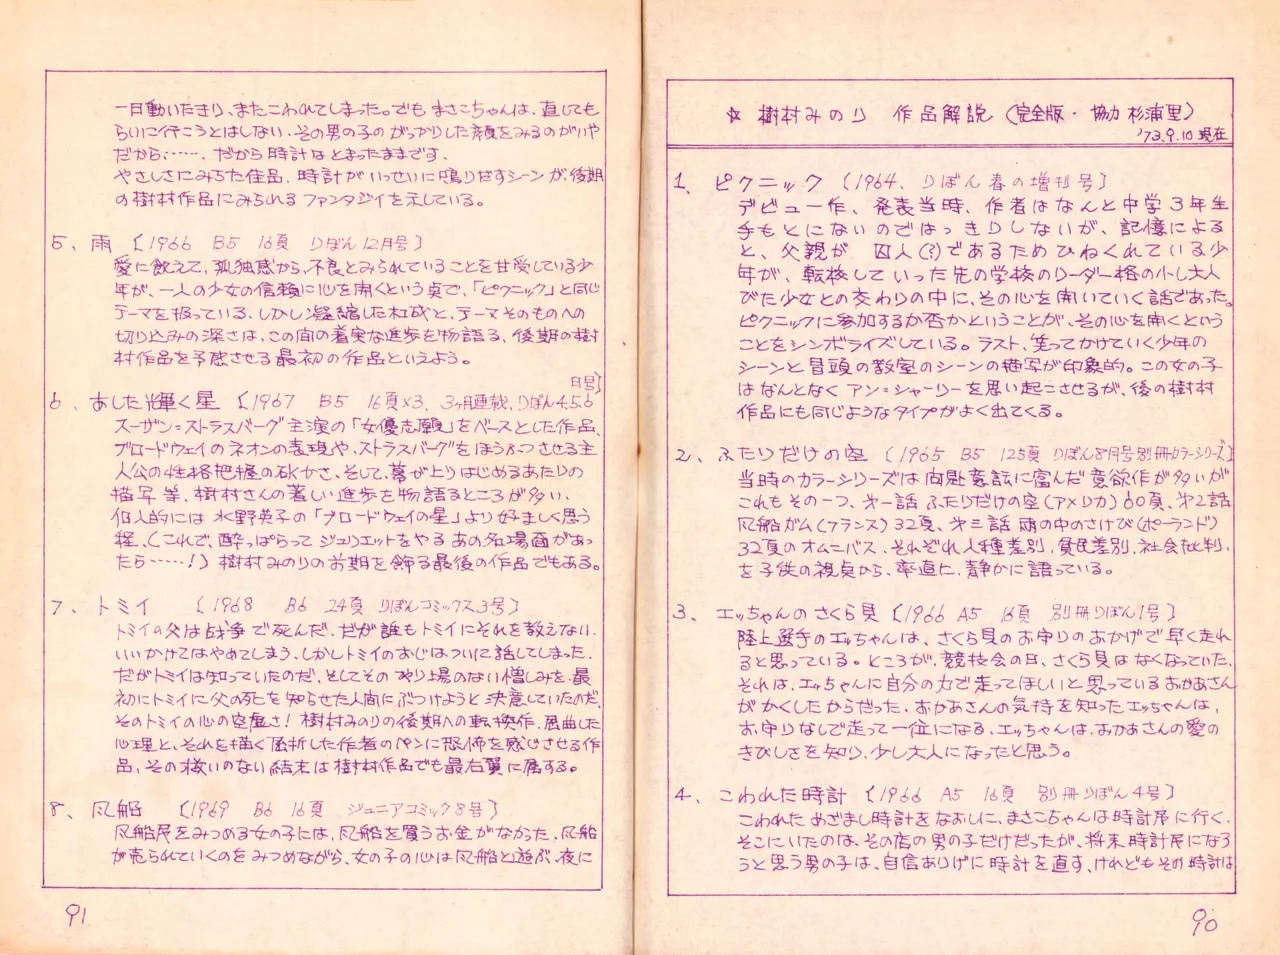 ☆ 樹村みのり 作品解説 (完全版・協力 杉浦里)
'73.9.10 現在
1、ピクニック 〔1964、りぼん春の増刊号〕
デビュー作、発表当時、作者はなんと中学3年生
手もとにないのではっきりしないが、記憶による
と、父親が 囚人(?)であるためひねくれている少
年が、転校していった先の学校のリーダー格の少し大人
びた少女との交わりの中に、その心を開いていく話であった。
ピクニックに参加するか否かということが、その心を開くという
ことをシンボライズしている。ラスト、笑ってかけていく少年の
シーンと冒頭の教室のシーンの描写が印象的。この女の子
はなんとなく アン=シャーリーを思い起こさせるが、後の樹村
作品にも同じようなタイプがよく出てくる。
2、ふたりだけの空 〔1965 B5 125頁 りぼん8月号別冊カラーシリーズ〕
当時のカラーシリーズは内容共に富んだ意欲作が多いが
これもその一つ、才一話 ふたりだけの空(アメリカ)60頁、才2話
風船ガム(フランス)32頁、才三話 雨の中のさけび(ポーランド)
32頁のオムニバス、それぞれ人種差別、貧民差別、社会批判、
を子供の視点から、率直に、静かに語っている。
3、エッちゃんのさくら貝 〔1966 A5 16頁 別冊りぼん1号〕
陸上選手のエッちゃんは、さくら貝のお守りのおかげで早く走れ
ると思っている。ところが、競技会の日、さくら貝はなくなっていた。
それは、エッちゃんに自分の力で走ってほしいと思っているおかあさん
がかくしたからだった、おかあさんの気持を知ったエッちゃんは、
お守りなしで走って一位になる、エッちゃんは、おかあさんの愛の
きびしさを知り、少し大人になったと思う。
4、こわれた時計 〔1966 A5 16頁 別冊りぼん4号〕
こわれためざまし時計をなおしに、まさこちゃんは時計屋に行く、
そこにいたのは、その店の男の子だけだったが、将来時計屋になろ
うと思う男の子は、自信ありげに時計を直す、けれどもその時計は
90
一日動いたきり、またこわれてしまった。でも まさこちゃんは、直しても
らいに行こうとはしない、その男の子のがっかりした顔をみるのがいや
だから……、だから時計はとまったままです。
やさしさにみちた佳品、時計がいっせいに鳴りだすシーンが、後期
の樹村作品にみられる ファンタジィを示している。
5、雨 〔1966 B5 16頁 りぼん12月号〕
愛に飢えて、孤独感から、不良とみられていることを甘受している少
年が、一人の少女の信頼に心を開くという点で、「ピクニック」と同じ
テーマを扱っている、しかし凝縮した構成と、テーマそのものへの
切り込みの深さは、この間の着実な進歩を物語る、後期の樹
村作品を予感させる最初の作品といえよう。
6、あした輝く星 〔1967 B5 16頁×3、3ヶ月連載、りぼん4.5.6月号〕
スーザン=ストラスバーグ主演の「女優志願」をベースとした作品、
ブロードウェイのネオンの表現や、ストラスバーグをほうふつさせる主
人公の性格把握の確かさ、そして、幕が上りはじめるあたりの
描写等、樹村さんの著しい進歩を物語るところが多い、
個人的には 水野英子の「ブロードウェイの星」より好ましく思う
程、(これで、酔っぱらって ジュリエットをやる あの名場面があっ
たら……!) 樹村みのりの前期を飾る最後の作品でもある。
7、トミイ 〔1968 B6 24頁 りぼんコミックス3号〕
トミイの父は戦争で死んだ、だが誰もトミイにそれを教えない、
いいかけてはやめてしまう、しかしトミイのおじはついに話してしまった、
だがトミイは知っていたのだ、そしてそのやり場のない憎しみを、最
初にトミイに父の死を知らせた人間にぶつけようと決意していたのだ、
そのトミイの心の空虚さ! 樹村みのりの後期への転換作、屈曲した
心理と、それを描く屈折した作者のペンに恐怖を感じさせる作
品、その救いのない結末は樹村作品でも最右翼に属する。
8、風船 〔1969 B6 16頁 ジュニアコミック8号〕
風船屋をみつめる女の子には、風船を買うお金がなかった、風船
が売られていくのをみつめながら、女の子の心は風船と遊ぶ、夜に
91